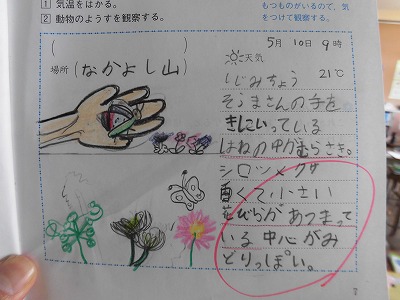 1 気温をはかる。
2 動物のようすを観察する。
もつものがいるので、気
をつけて観察する。
(          )
場所(なかよし山)
5月10日9時
天気
しじみちょう 21℃
そうまさんの手を
きにいっている
はねの中がむらさき。
シロツメクサ
白くて小さい
花びらがあつまって
いる中心がみ
どりっぽい。
7